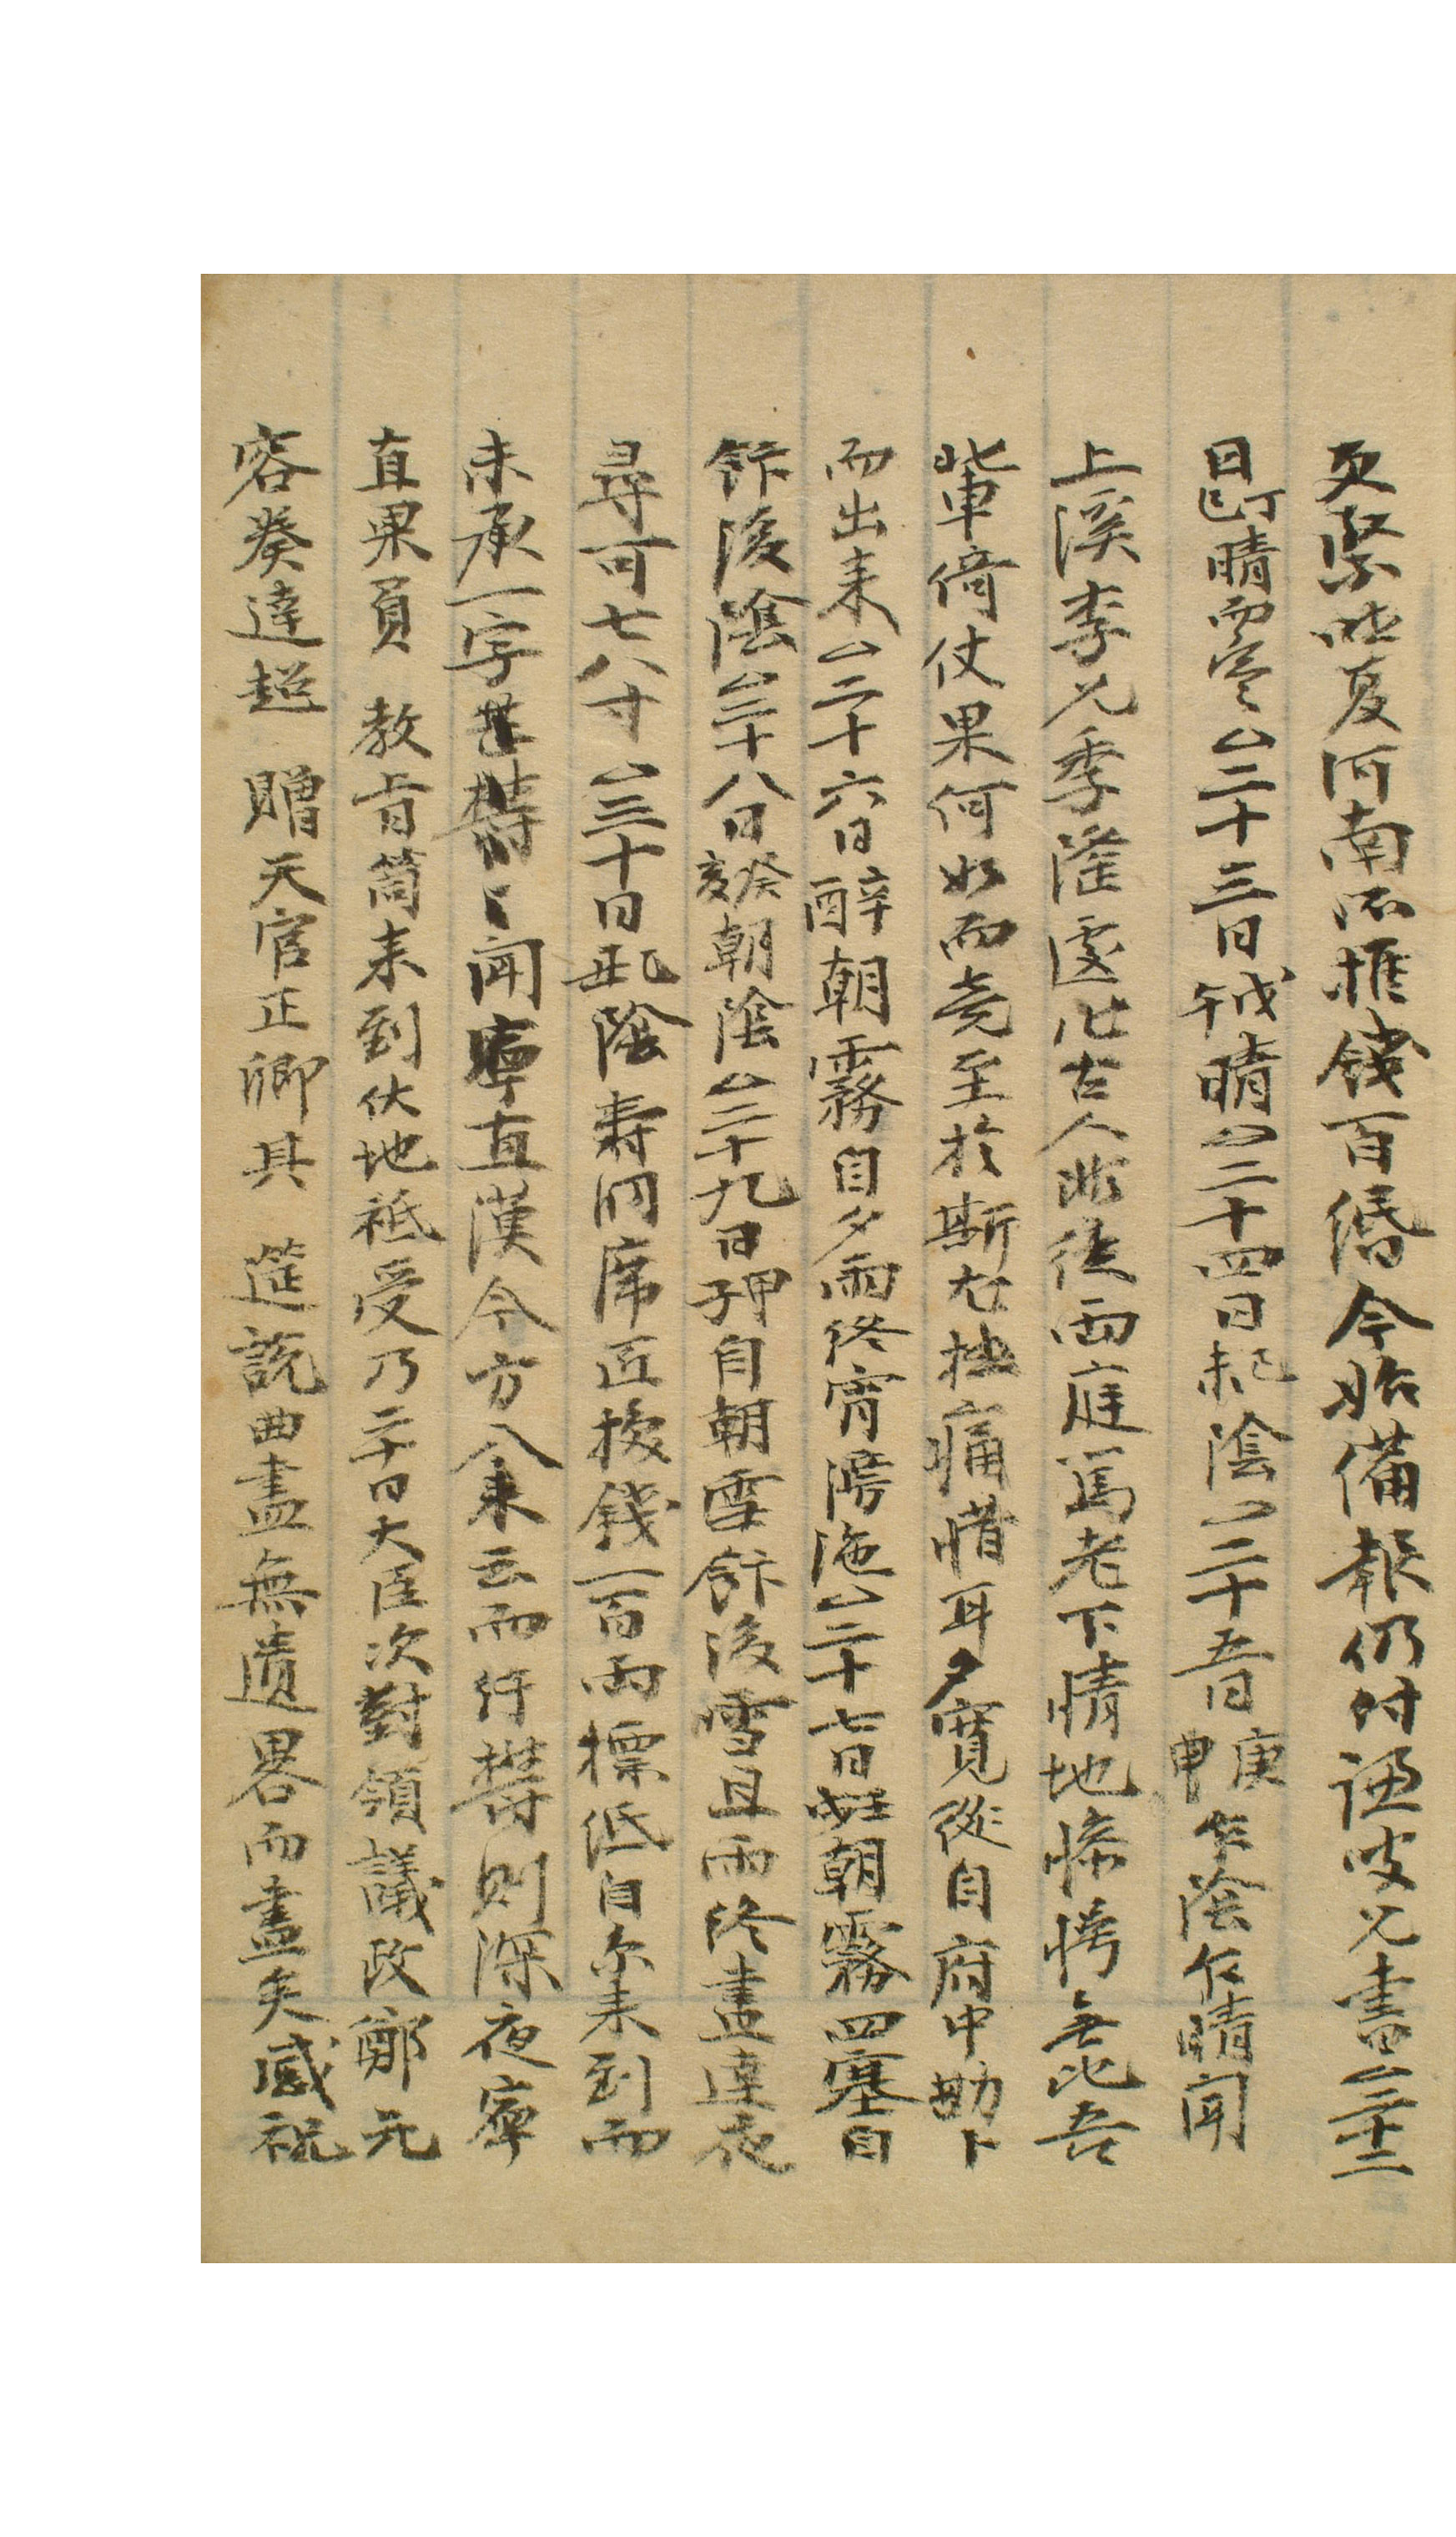 更緊此夏河南所推錢百緡今始備報仍付謹安兄書△二十二
日丁巳晴而寒△二十三日戊午晴△二十四日己未陰△二十五日庚申乍陰乍晴聞
上溪李兄季 遽作古人此從西庭焉老下情地慘愕無比吾
輩倚仗果何如而竟至於斯尤極痛惜耳夕寬從自府中勘卜
而出來△二十六日辛酉朝霧自夕雨終宵滂沱△二十七日壬戌朝霧四塞自
飯後陰△二十八日癸亥朝陰△二十九日甲子自朝雪飯後雪且雨終晝達夜
尋可七八寸△三十日乙丑陰壽洞席匠換錢一百兩標紙自京來到而
未承一字甚菀菀聞寧直漢今方入來云而行 則深夜寧
直果負 教旨筒來到伏地祗受乃二十日大臣次對領議政鄭元
容奏達超 贈天官正卿其 筵說曲盡無遺畧而盡矣感祝